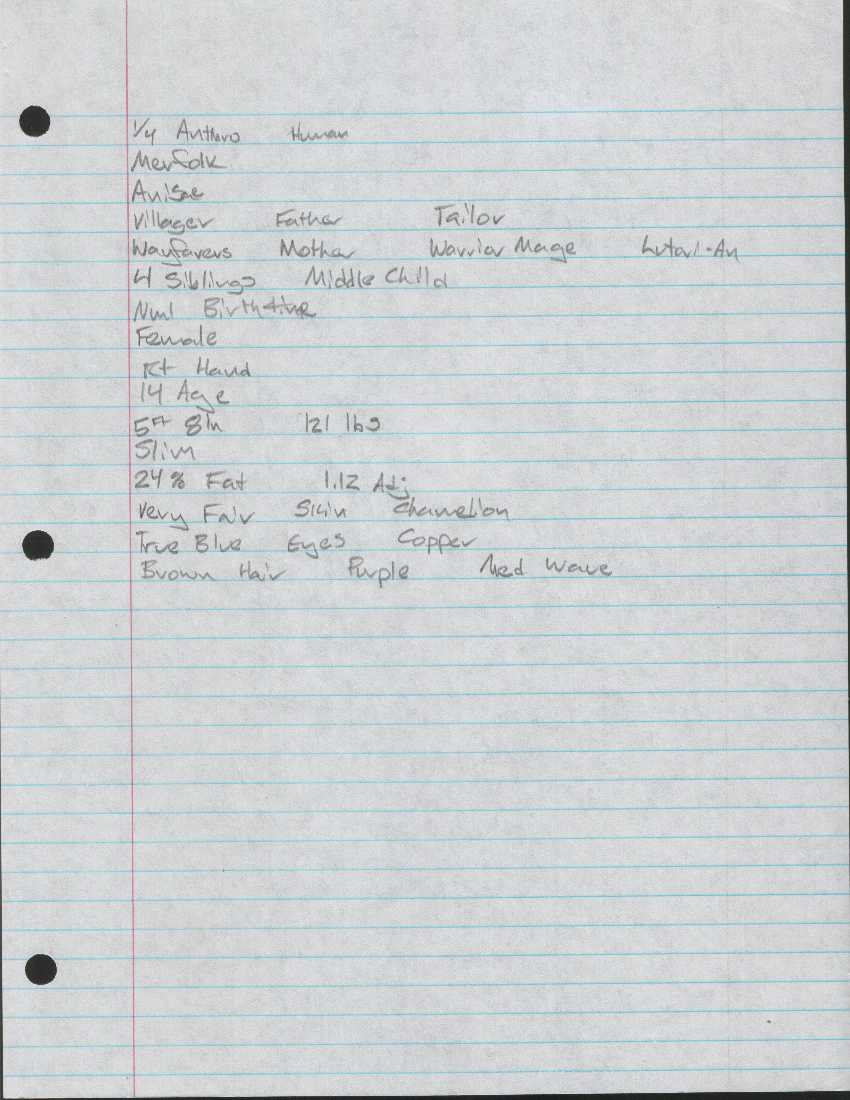 1/4 Anthro Human
Merfolk
Anisae
Villager Father Tailor
Wayfarers Mother Warrior Mage Lutari-An
4 Siblings Middle Child
Nml Birthtime
Female
Rt Hand
14 Age
5Ft 8In 121 lbs
Slim
24% Fat 1.12 Adj
Very Fair Skin Chamelion
True Blue Eyes Copper
Brown Hair Purple Med Wave